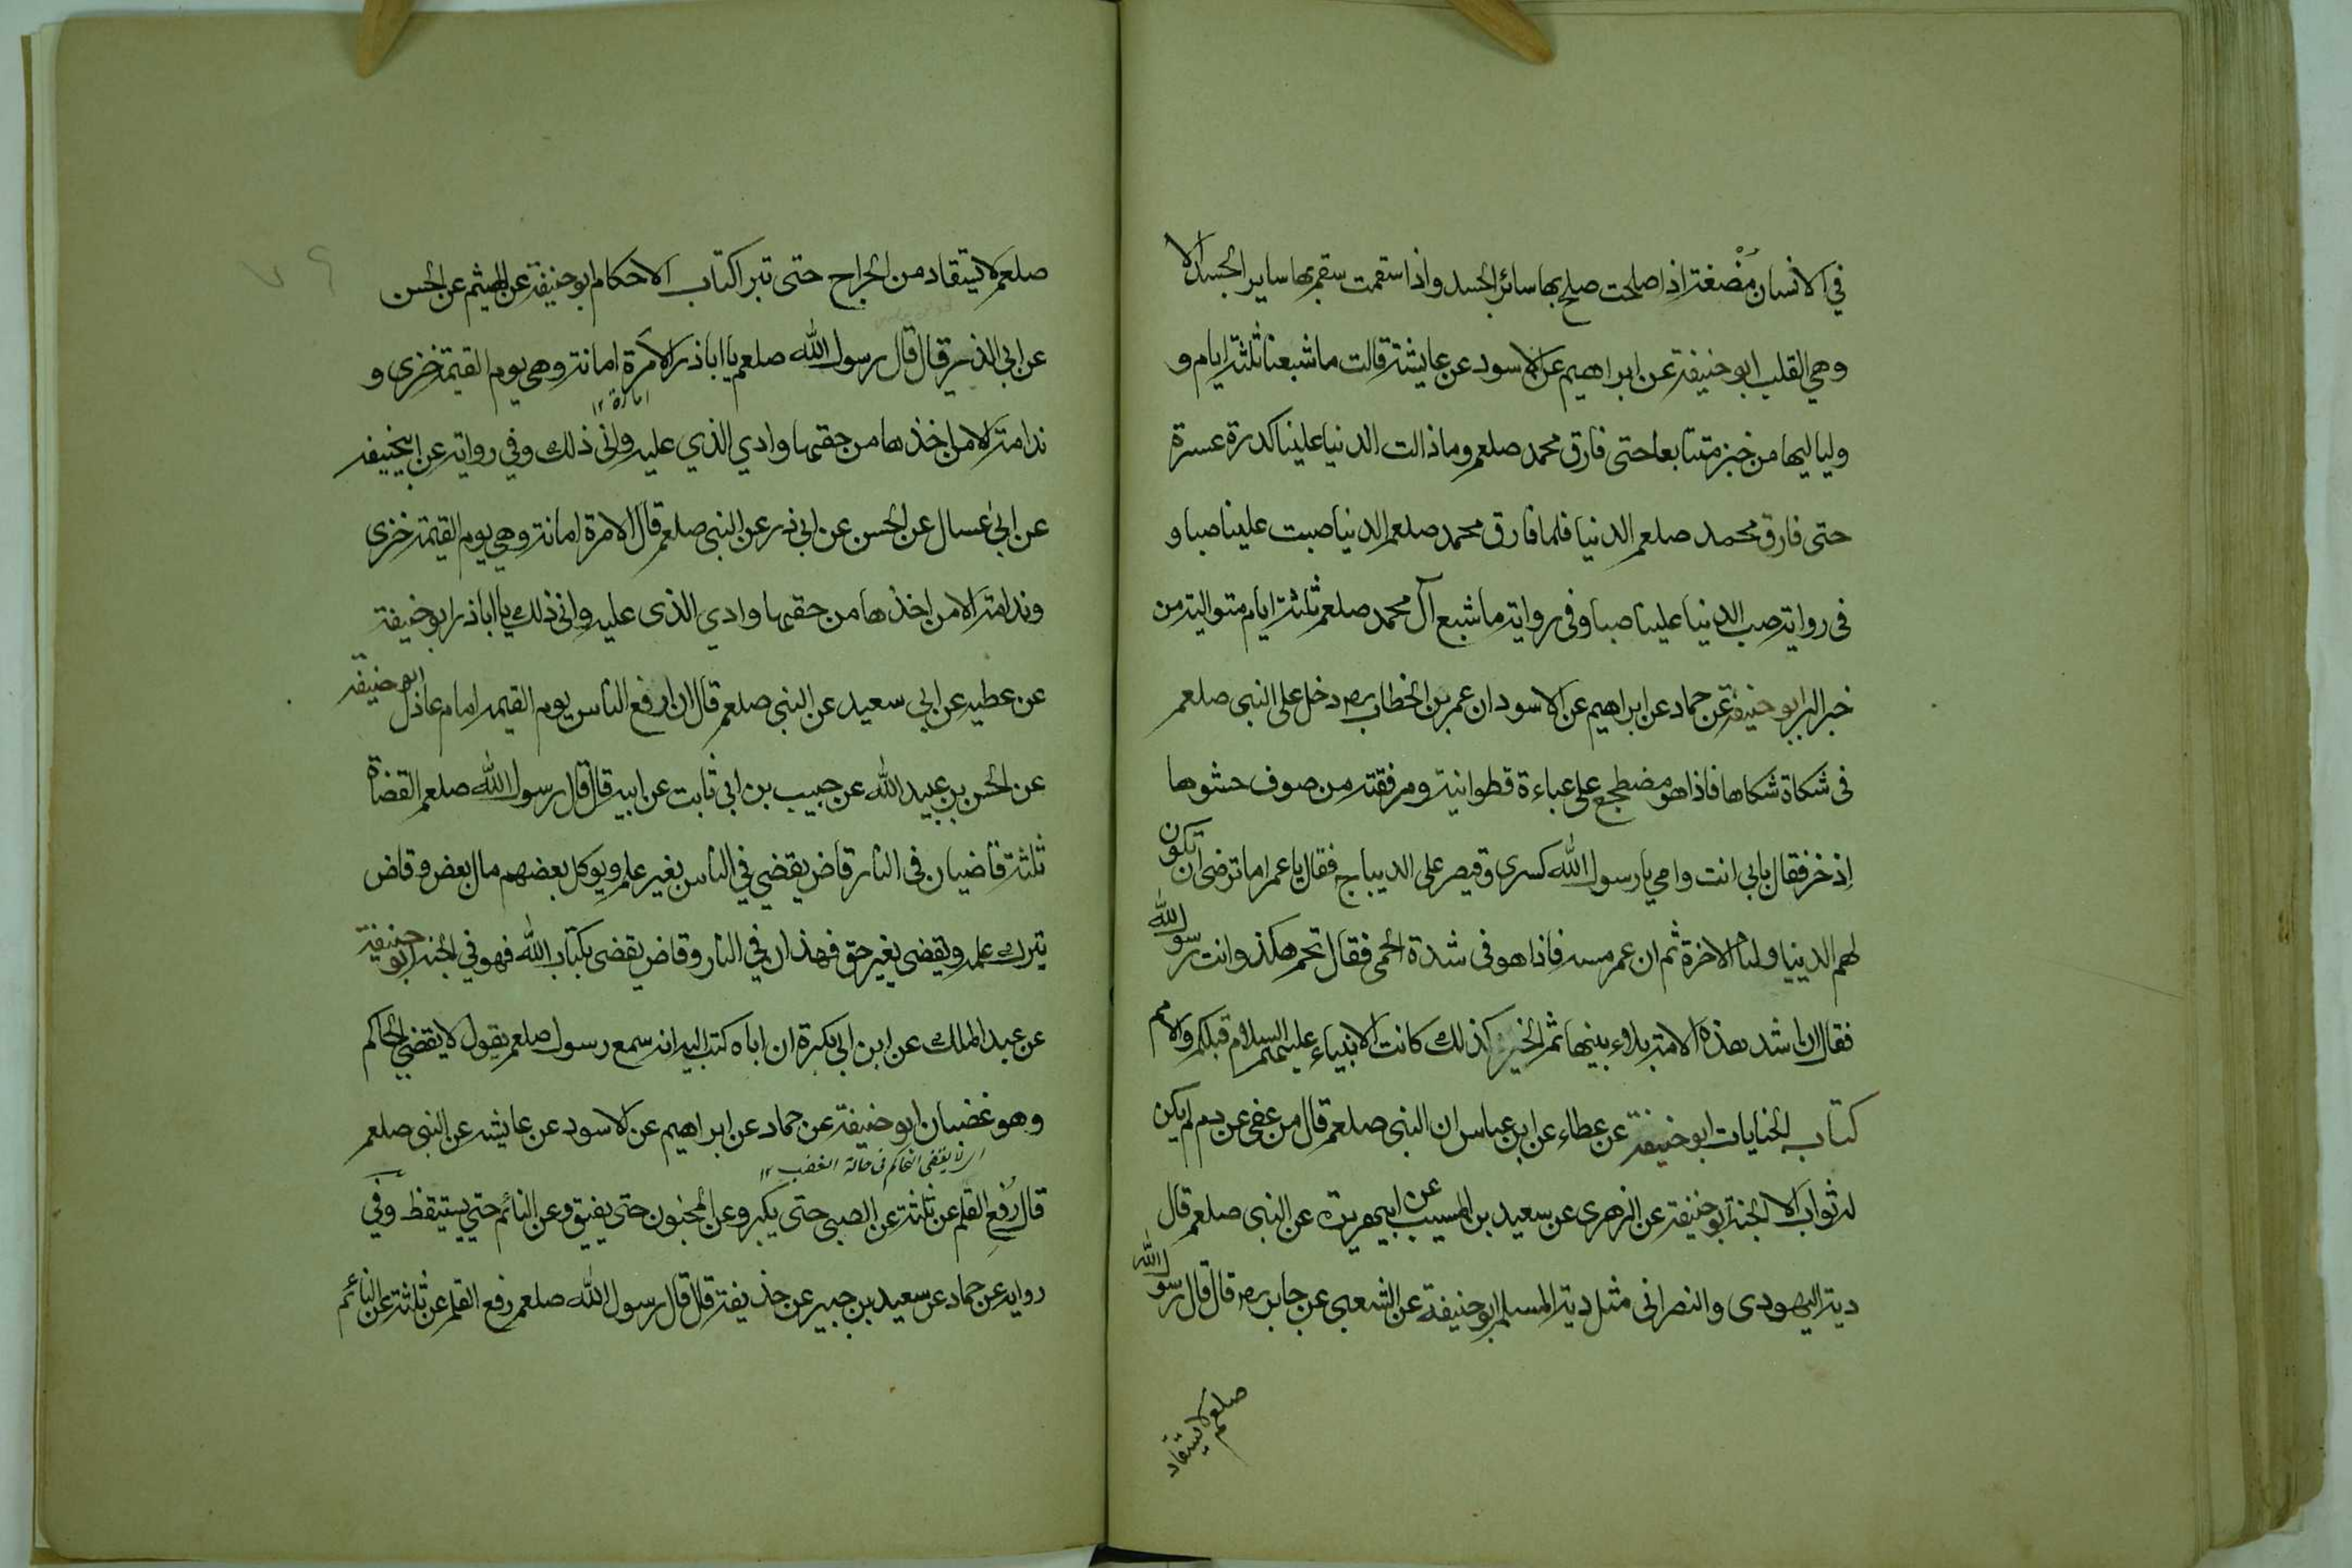 في الانسان مُضْغة اذا صلحت صلح بها سائر الجسد واذا سقمت سقم بها ساير الجسد الا
وهي القلب ابو حنيفة عن ابراهيم عن الاسود عن عايشة قالت ما شبعنا ثلثة ايام و
لياليها من خبز متتابعا حتى فارق محمد صلعم وما ذالت الدنيا علينا كدرة عسرة
حتى فارق محمد صلعم الدنيا فلما فارق محمد صلعم الدنيا صبت علينا صبا و
فى رواية صب الدنيا علينا صبا وفى رواية ما شبع آل محمد صلعم ثلثة ايام متوالية من
خبز البر ابو حنيفة عن حماد عن ابراهيم عن الاسود ان عمر بن الخطاب رض دخل على النبى صلعم
فى شكاة شكاها فاذا هو مضطجع على عباءة قطوانية ومرفقته من صوف حشوها
اذخر فقال بابى انت وامي يا رسول الله كسرى وقيصر على الديباج فقال يا عمر اما ترضى ان تكون
لهم الدنيا ولنا الاخرة ثم ان عمر مسه فاذا هو فى شدة الحمى فقال تحم هكذا وانت رسول الله
فقال ان اشد هذه الامة بلاء بنيها ثم الخير كذلك كانت الانبياء عليهم السلام قبلكم والامم
كتاب الجنايات ابو حنيفة عن عطاء عن ابن عباس ان النبى صلعم قال من عفى عن دم لم يكن
له ثواب الا الجنة ابو حنيفة عن الزهرى عن سعيد بن المسيب عن ابيهريرة عن النبى صلعم قال
دية اليهودى والنصرانى مثل دية المسلم ابو حنيفة عن الشعبى عن جابر رض قال قال رسول الله
صلعم لا يستقاد
صلعم لا يستقاد من الجراح حتى تبرا كتاب الاحكام ابو حنيفة عن الهيثم عن الحسن
عن ابى الذر قال قال رسول الله صلعم يا اباذر الامرة امانة وهى يوم القيمة خزى و
امارة ١٢
ندامة الا من اخذها من حقها وادي الذي عليه وانى ذلك وفي رواية عن ابيحنيفه
عن ابى عسال عن الحسن عن ابى ذر عن النبى صلعم قال الامرة امانة وهي يوم القيمة خزى
وندامة الا من اخذها من حقها وادي الذى عليه وانى ذلك يا اباذر ابو حنيفة
عن عطيه عن ابي سعيد عن النبى صلعم قال ان ارفع الناس يوم القيمه امام عادل ابو حنيفه
عن الحسن بن عبيد الله عن حبيب بن ابى ثابت عن ابيه قال قال رسول الله صلعم القضاة
ثلثة قاضيان فى النار قاض يقضي في الناس بغير علم ويوكل بعضهم مال بعض وقاض
يترك علمه ويقضى بغير حق فهذان في النار وقاض يقضى بكتاب الله فهو في الجنة ابو حنيفة
عن عبد الملك عن ابن ابى بكرة ان اباه كتب اليه انه سمع رسول صلعم يقول لا يقضي الحاكم
وهو غضبان ابو حنيفة عن حماد عن ابراهيم عن الاسود عن عايشه عن النبى صلعم
اى لا يقضى الحاكم فى حالة الغضب ١٢
قال رُفِع القلم عن ثلثة عن الصبى حتى يكبر وعن المجنون حتى يفيق وعن النائم حتى يستيقظ وفي
رواية عن حماد عن سعيد بن جبير عن حذيفة قال قال رسول الله صلعم رفع القلم عن ثلثة عن النائم